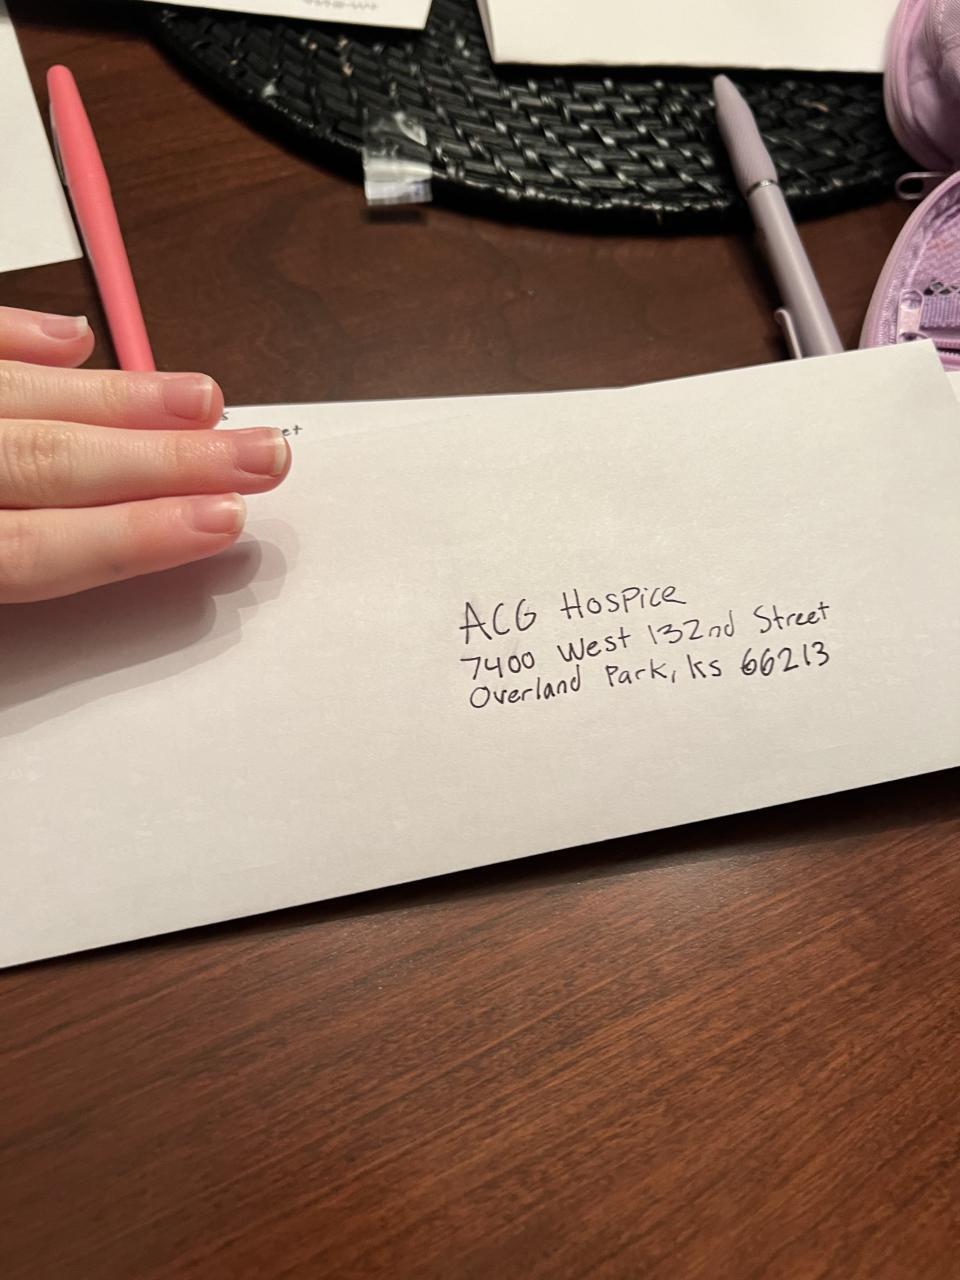 s
et
ACG Hospice
7400 West 132nd Street
Overland Park, Ks 66213